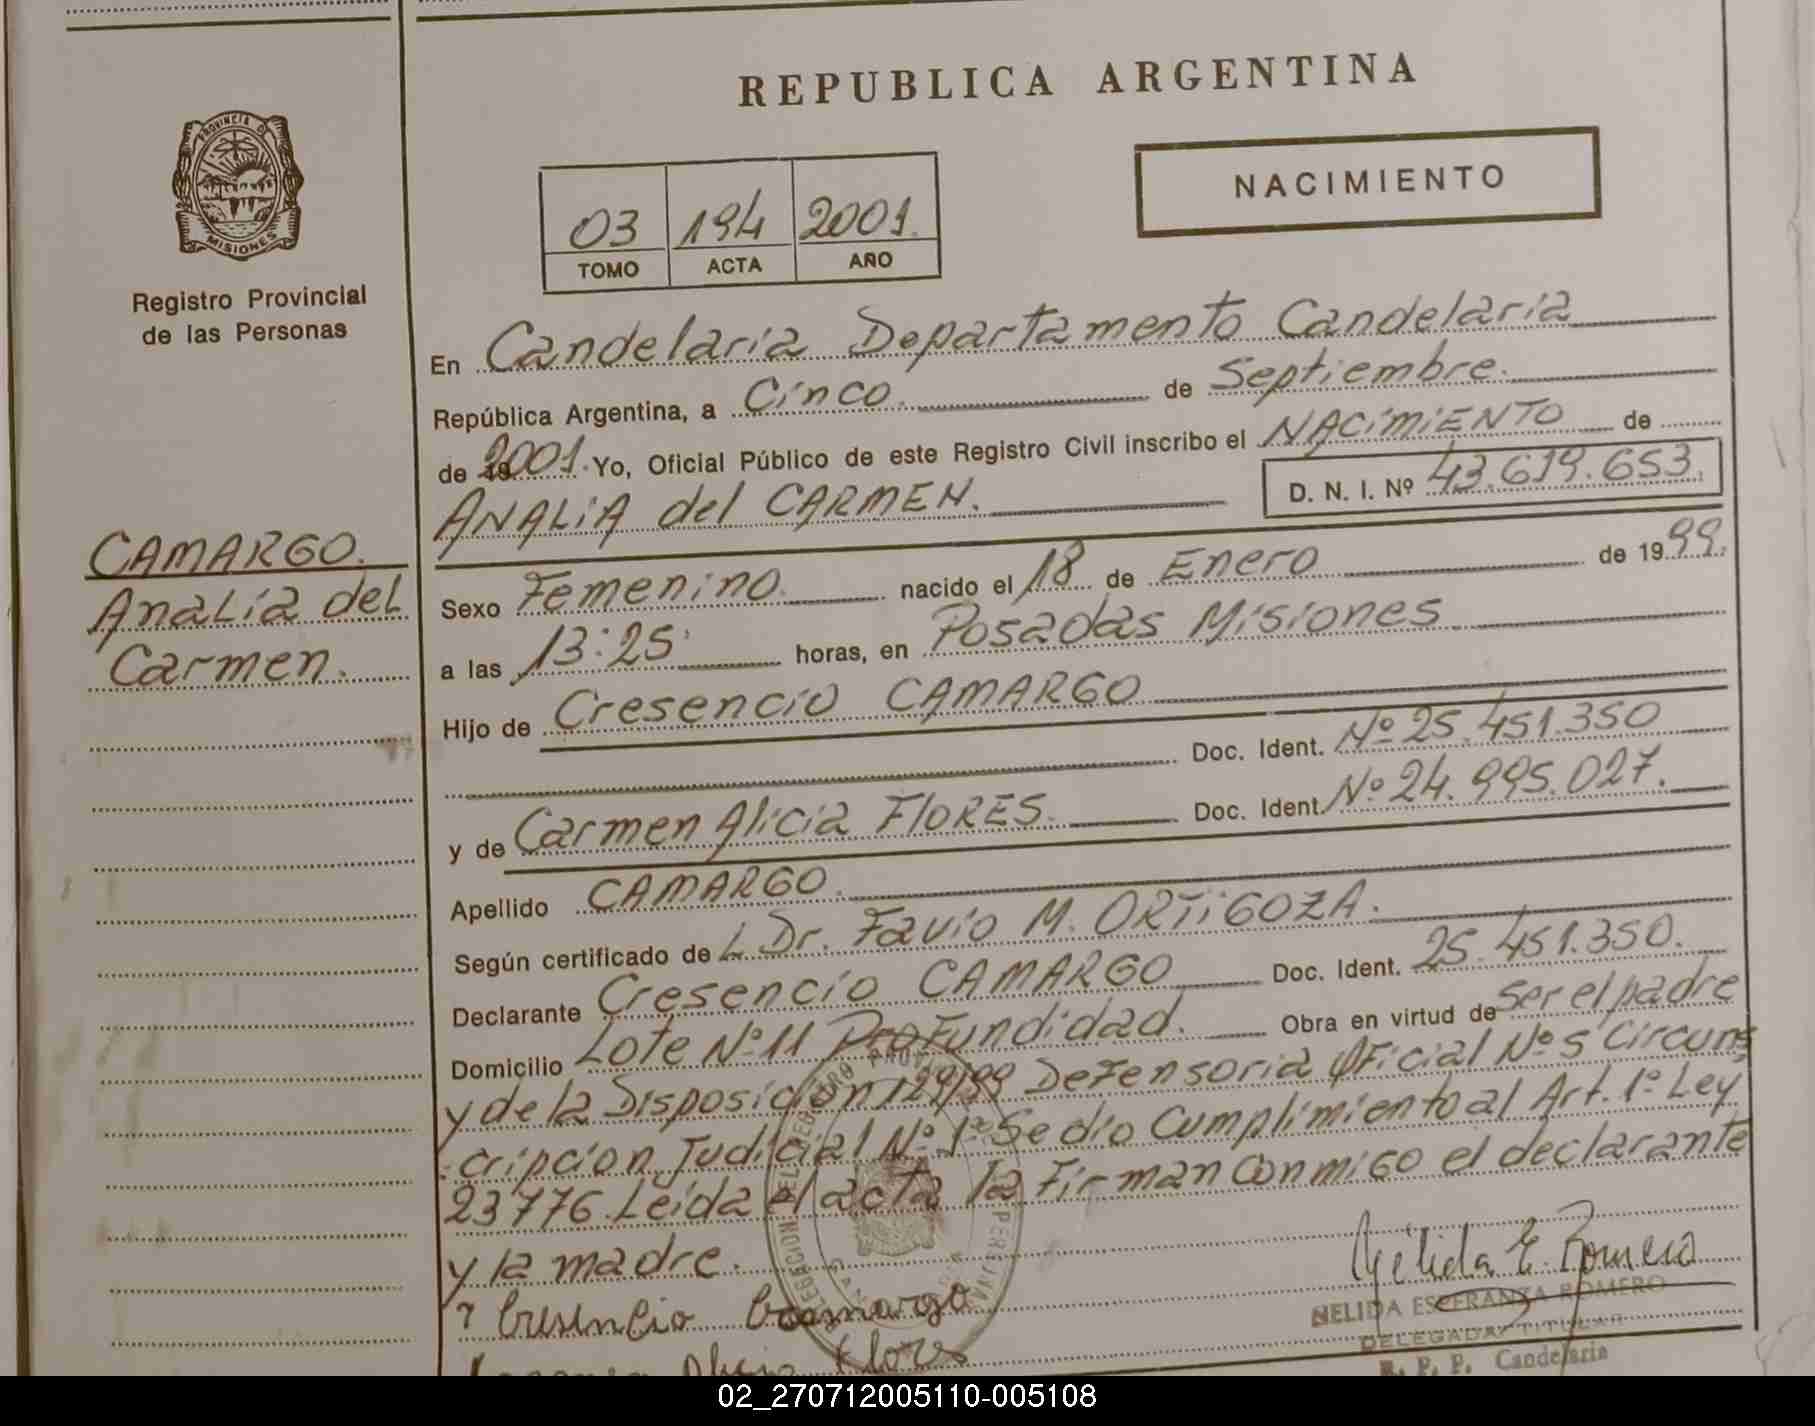 REPUBLICA ARGENTINA
NACIMIENTO
PROVINCIA DE
MISIONES
Registro Provincial
de las Personas
03 194 2001
TOMO ACTA AÑO
En Candelaria Departamento Candelaria
República Argentina, a Cinco de Septiembre
de 2001. Yo, Oficial Público de este Registro Civil inscribo el NACIMIENTO de
ANALIA del CARMEN. D. N. I. Nº 43.619.653.
CAMARGO.
Analia del
Carmen.
Sexo Femenino nacido el 18 de Enero de 1999.
a las 13:25 horas, en Posadas Misiones
Hijo de Cresencio CAMARGO
Doc. Ident. Nº 25.451.350
y de Carmen Alicia FLORES. Doc. Ident. Nº 24.995.027.
Apellido CAMARGO.
Según certificado de L Dr. Favio M. ORTIGOZA.
Declarante Cresencio CAMARGO Doc. Ident. 25.451.350.
Domicilio Lote Nº 11 Profundidad. Obra en virtud de ser el padre
y de la Disposición 129/99 Defensoria Oficial Nº 5 Circuns
cripcion Judicial Nº 1º Se dio Cumplimiento al Art. 1º Ley
23776. Leida el acta la Firman Conmigo el declarante
y la madre.
Cresencio Camargo
Alicia Flores
Nélida E. Romero
NELIDA ESPERANZA ROMERO
DELEGADA TITULAR
R. P. P. Candelaria
02_270712005110-005108